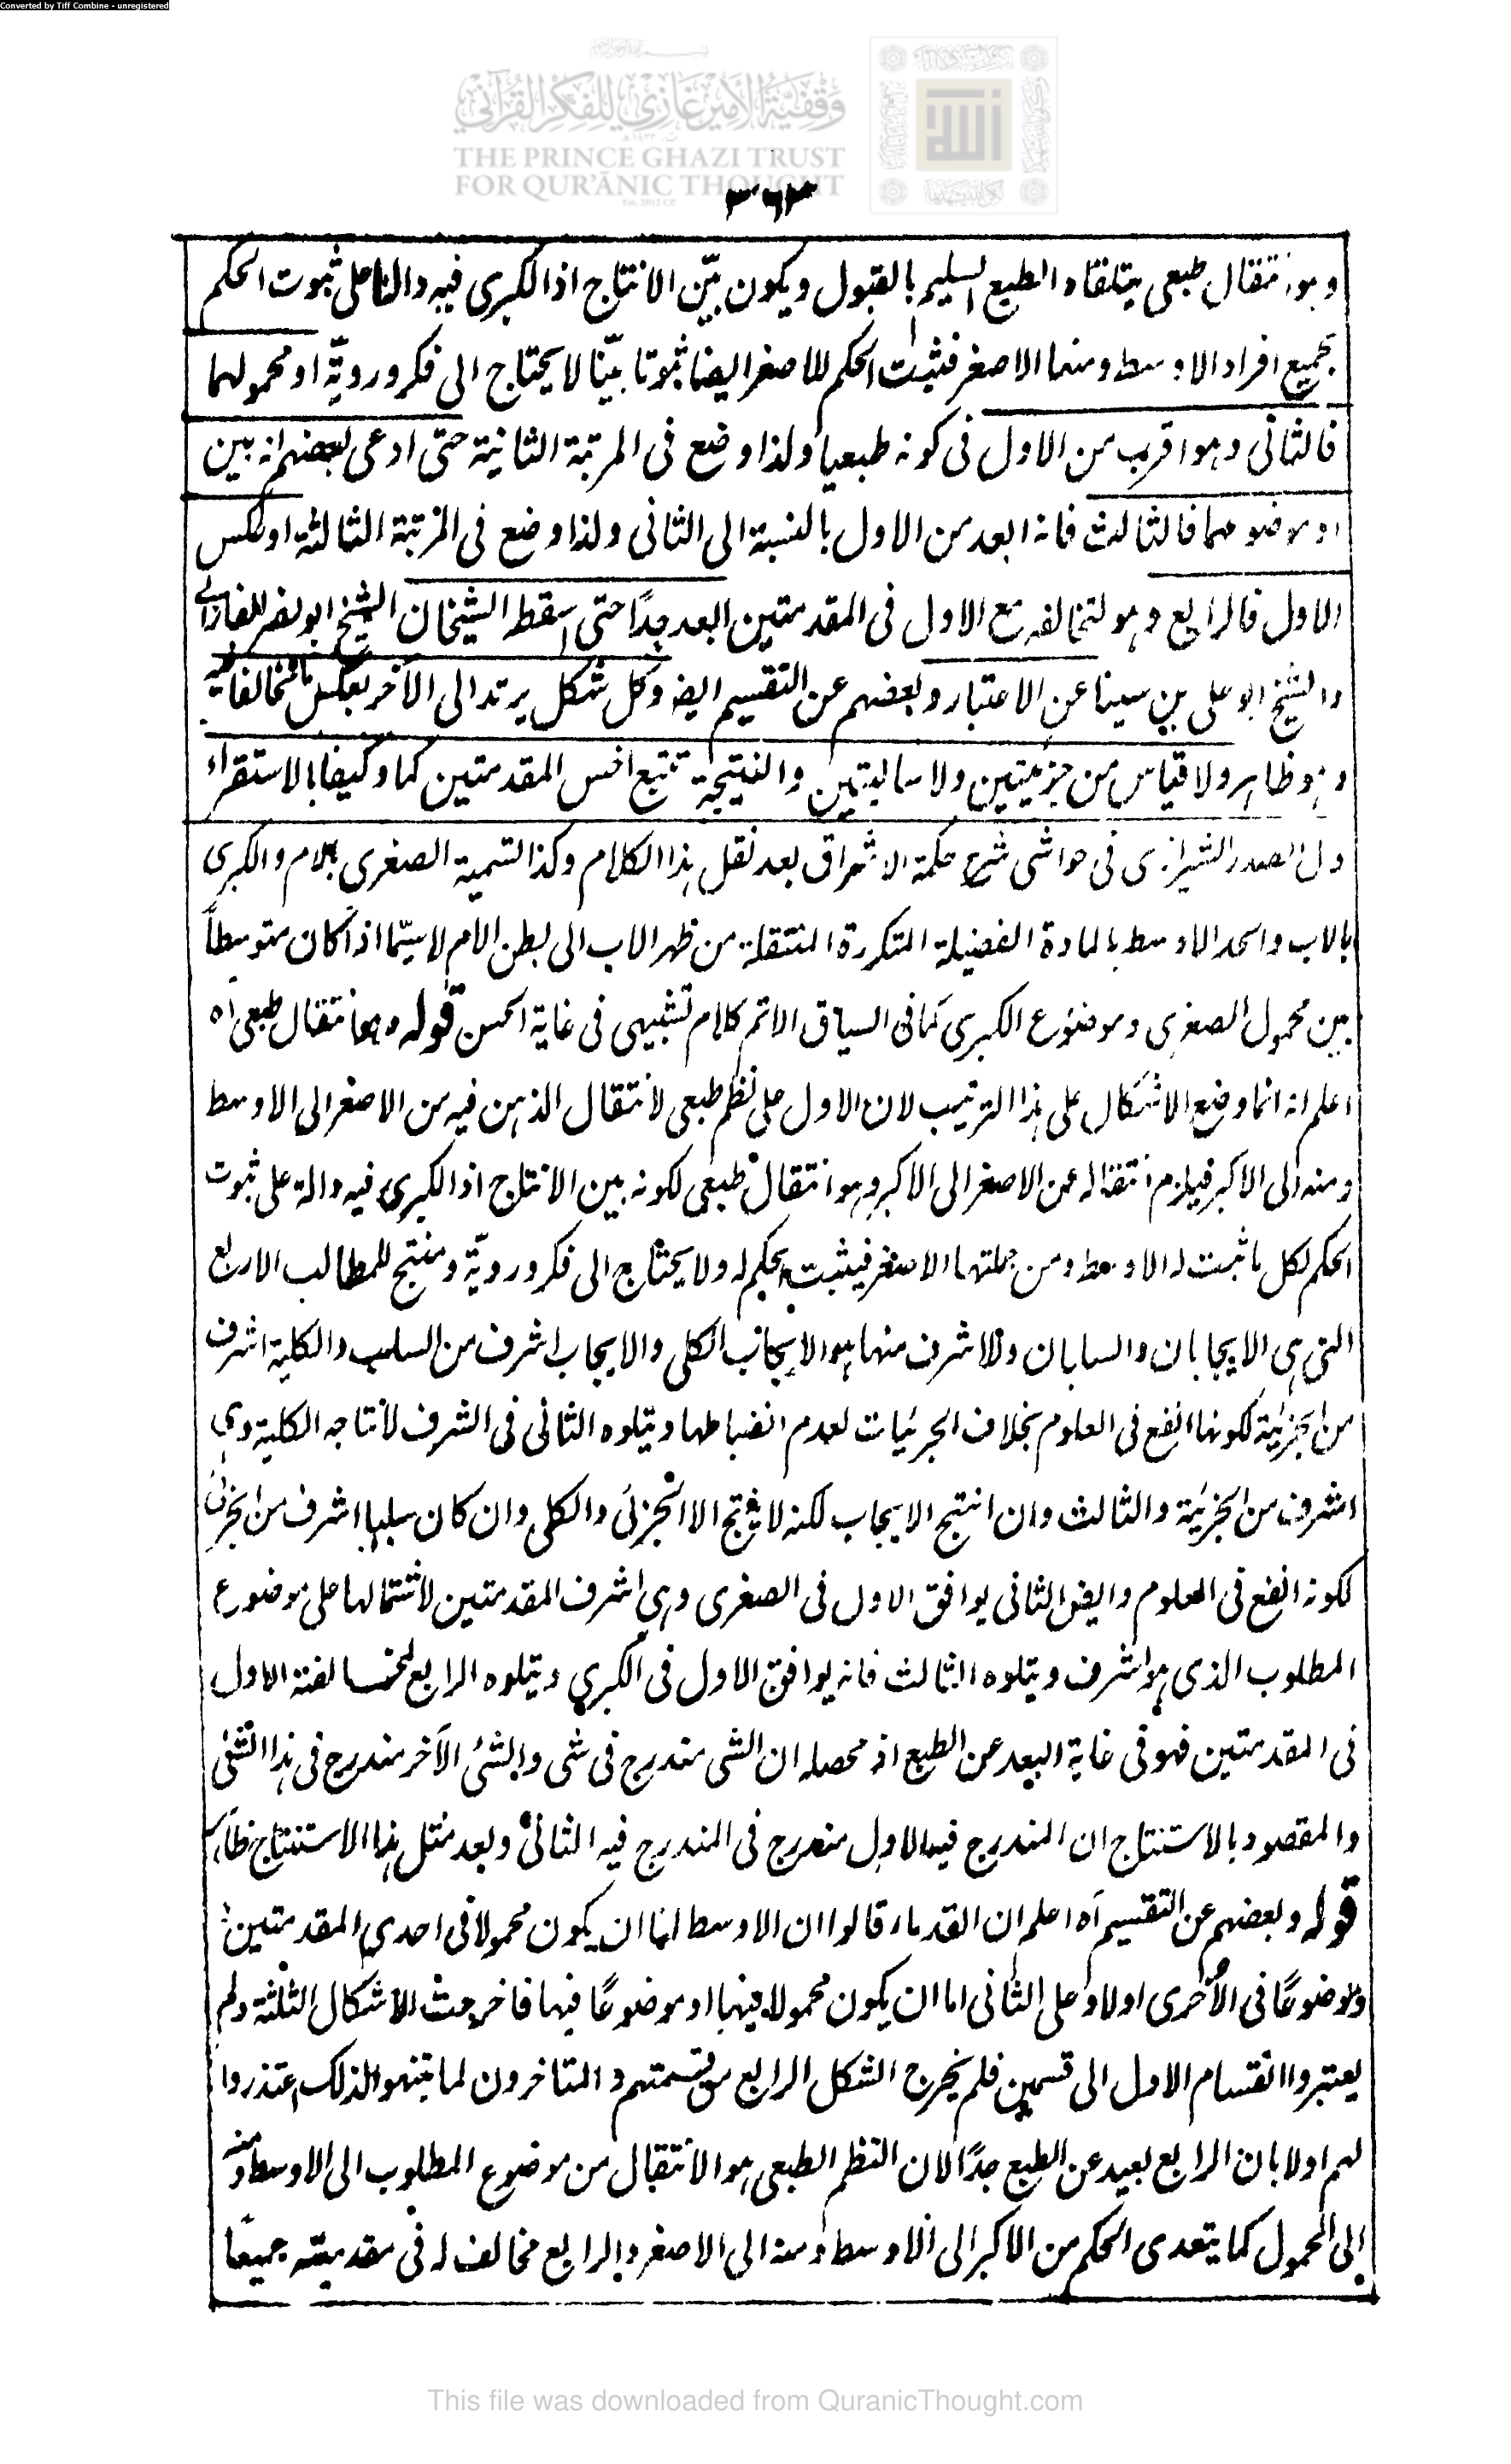 Converted by Tiff Combine - unregistered
وقفية الأمير غازي للفكر القرآني
THE PRINCE GHAZI TRUST
FOR QUR'ĀNIC THOUGHT
Est. 2012 CE
٣٦٣
وهو انتقال طبعى يتلقاه الطبع السليم بالقبول ويكون بيّن الانتاج اذ الكبرى فيه دالة على ثبوت الحكم
بجميع افراد الاوسط ومنها الاصغر فثبت الحكم للاصغر ايضا ثبوتا بيّنا لا يحتاج الى فكر ورويّة او محمولهما
فالثانى وهو اقرب من الاول فى كونه طبعيا ولذا وضع فى المرتبة الثانية حتى ادعى بعضهم انه بين
او موضوعهما فالثالث فانه ابعد من الاول بالنسبة الى الثانى ولذا وضع فى المرتبة الثالثة او عكس
الاول فالرابع وهو لتخالفه مع الاول فى المقدمتين ابعد جدًا حتى اسقط الشيخان الشيخ ابو نصر الفارابى
والشيخ ابو على بن سينا عن الاعتبار وبعضهم عن التقسيم ايضا وكل شكل يرتد الى الآخر بعكس ما تخالفا فيه
وهو ظاهر ولا قياس من جزئيتين ولا سالبتين والنتيجة تتبع اخس المقدمتين كما وكيفا بالاستقراء
الصدر الشيرازى فى حواشى شرح حكمة الاشراق بعد نقل هذا الكلام وكذا تسمية الصغرى بالام والكبرى
بالاب والحد الاوسط بالمادة الفضيلة المتكررة المنتقلة من ظهر الاب الى بطن الام لاسيّما اذا كان متوسطاً
بين محمول الصغرى وموضوع الكبرى كما فى السياق الاتم كلام تشبيهى فى غاية الحسن قوله وهو انتقال طبعى اه
اعلم انه انما وضع الاشكال على هذا الترتيب لان الاول على نظم طبعى لانتقال الذهن فيه من الاصغر الى الاوسط
ومنه الى الاكبر فيلزم انتقاله من الاصغر الى الاكبر وهو انتقال طبعى لكونه بين الانتاج اذ الكبرى فيه دالة على ثبوت
الحكم لكل ما ثبت له الاوسط ومن جملتها الاصغر فيثبت الحكم له ولا يحتاج الى فكر ورويّة ومنتج للمطالب الاربع
التى هى الايجابان والسلبان والاشرف منها هو الايجاب الكلى والايجاب اشرف من السلب والكلية اشرف
من الجزئية لكونها انفع فى العلوم بخلاف الجزئيات لعدم انضباطها ويتلوه الثانى فى الشرف لانتاجه الكلية وهى
اشرف من الجزئية والثالث وان انتج الايجاب لكنه لا ينتج الا الجزئى والكلى وان كان سلبا اشرف من الجزئى
لكونه انفع فى العلوم وايضا الثانى يوافق الاول فى الصغرى وهى اشرف المقدمتين لاشتمالها على موضوع
المطلوب الذى هو اشرف ويتلوه الثالث فانه يوافق الاول فى الكبرى ويتلوه الرابع لمخالفته الاول
فى المقدمتين فهو فى غاية البعد عن الطبع اذ محصله ان الشى مندرج فى شى والشئ الآخر مندرج فى هذا الشئ
والمقصود بالاستنتاج ان المندرج فيه الاول مندرج فى المندرج فيه الثانى وبعد مثل هذا الاستنتاج ظاهر
قوله وبعضهم عن التقسيم آه اعلم ان القدماء قالوا ان الاوسط اما ان يكون محمولا فى احدى المقدمتين
وموضوعًا فى الأخرى اولا وعلى الثانى اما ان يكون محمولا فيهما او موضوعًا فيهما فاخرجت الاشكال الثلثة ولم
يعتبروا انقسام الاول الى قسمين فلم يخرج الشكل الرابع من قسمتهم والمتاخرون لما تنبهوا لذلك اعتذروا
لهم اولا بان الرابع بعيد عن الطبع جدًا لان النظم الطبعى هو الانتقال من موضوع المطلوب الى الاوسط ومنه
الى المحمول كما يتعدى الحكم من الاكبر الى الاوسط ومنه الى الاصغر والرابع مخالف له فى مقدمتيه جميعًا
This file was downloaded from QuranicThought.com